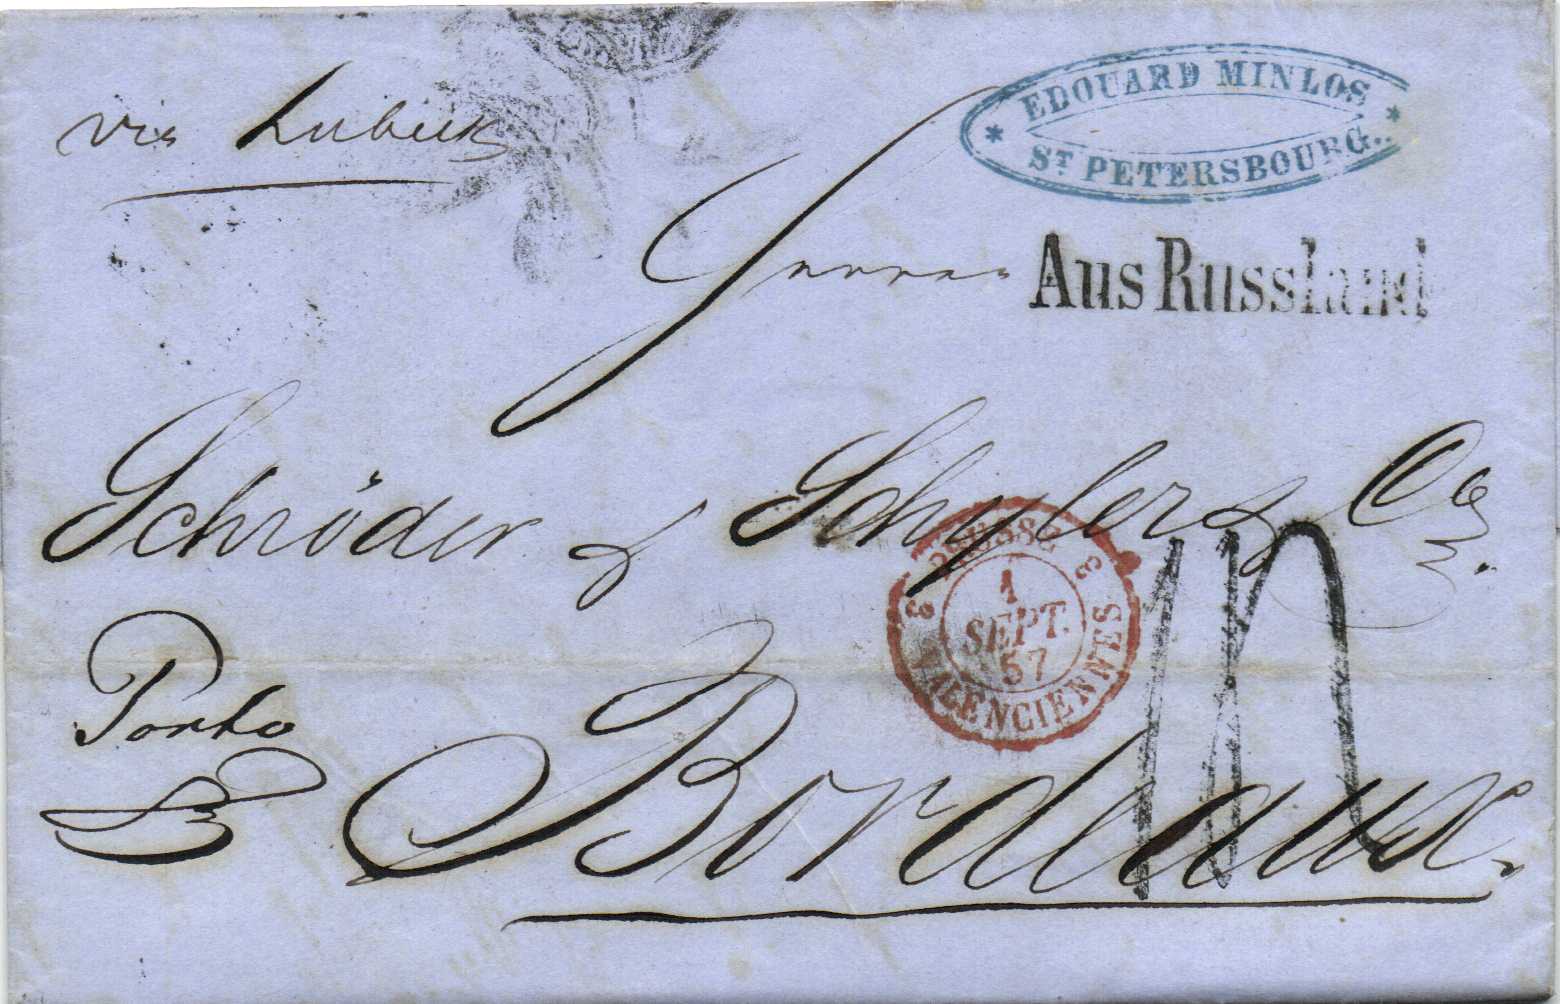 via Lubeck
EDOUARD MINLOS
ST PETERSBOURG.
Herren
Aus Russland
Schröder & Schyler & Co.
PRUSSE 3
3 1
SEPT.
57
VALENCIENNES
Porto
Bordeaux.